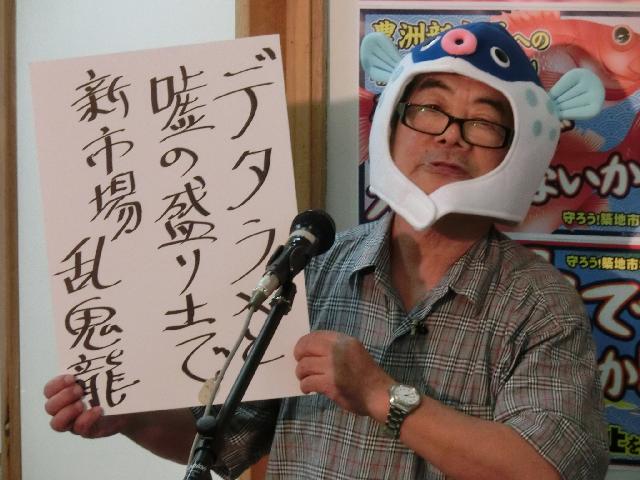 デタラメと
嘘の盛り土で
新市場乱鬼龍
豊洲新
への
ないか
守ろう!築地市
守ろう!築地市場
て
か
土を